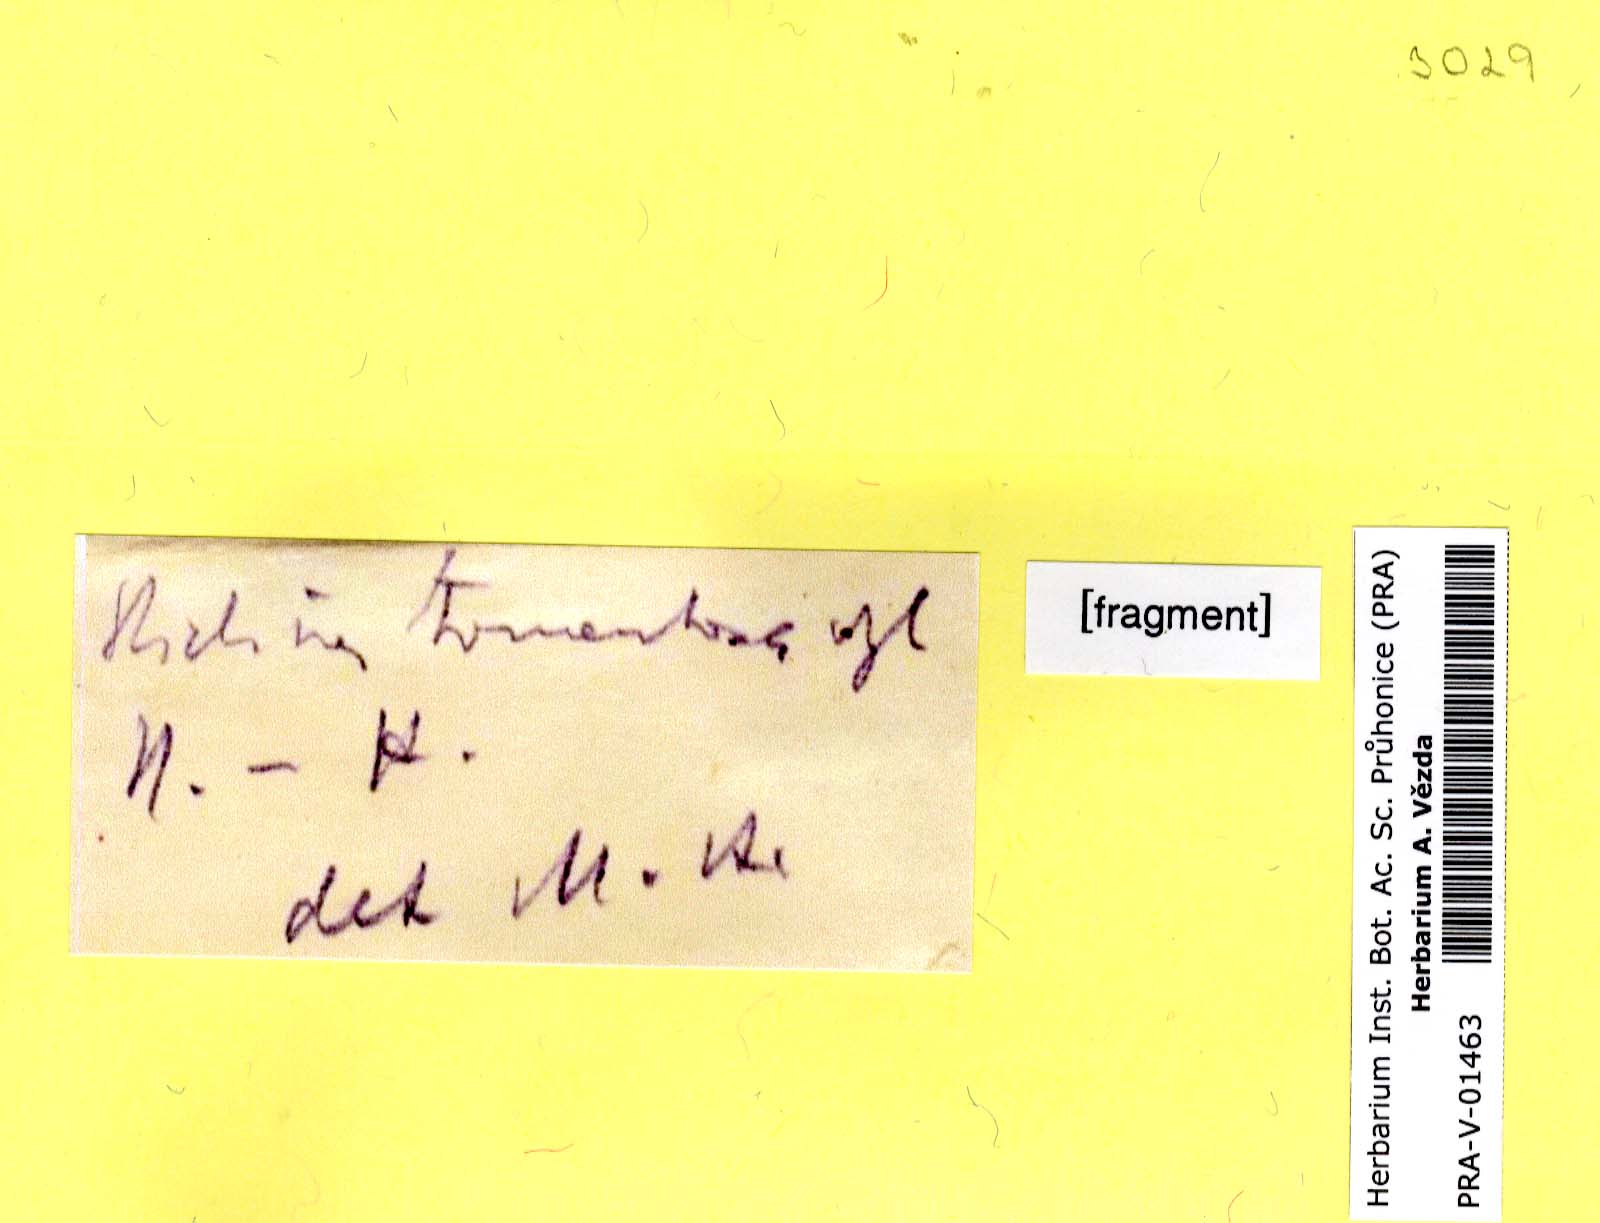 3029
tomentosa
N. - H.
det M.
[fragment]
Herbarium Inst. Bot. Ac. Sc. Průhonice (PRA)
Herbarium A. Vězda
PRA-V-01463